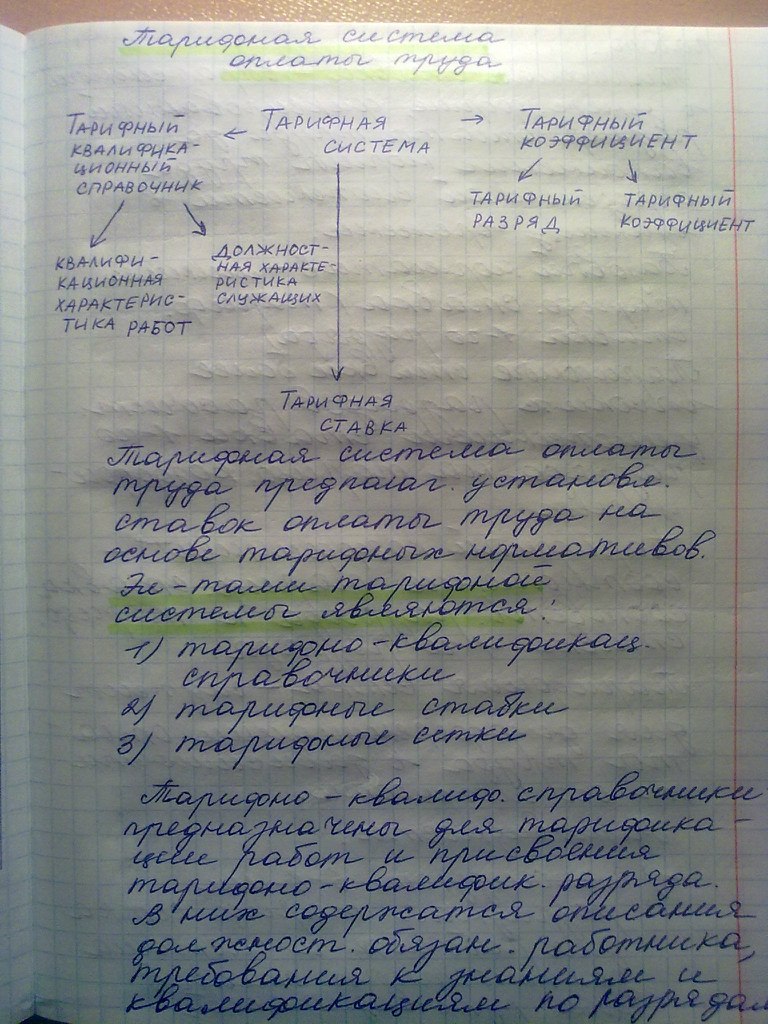 Тарифная система
оплаты труда
ТАРИФНЫЙ
КВАЛИФИКА-
ЦИОННЫЙ
СПРАВОЧНИК
ТАРИФНАЯ
СИСТЕМА
ТАРИФНЫЙ
КОЭФФИЦИЕНТ
ТАРИФНЫЙ
РАЗРЯД
ТАРИФНЫЙ
КОЭФФИЦИЕНТ
КВАЛИФИ-
КАЦИОННАЯ
ХАРАКТЕРИС-
ТИКА РАБОТ
ДОЛЖНОСТ-
НАЯ ХАРАКТЕ-
РИСТИКА
СЛУЖАЩИХ
ТАРИФНАЯ
СТАВКА
Тарифная система оплаты
труда предполаг. установл.
ставок оплаты труда на
основе тарифных нормативов.
Эл-тами тарифной
системы являются:
1) тарифно-квалификац.
справочники
2) тарифные ставки
3) тарифные сетки
Тарифно-квалиф. справочники
предназначены для тарифика-
ции работ и присвоения
тарифно-квалифик. разряда.
В них содержатся описания
должност. обязан. работника,
требования к знаниям и
квалификациям по разрядам